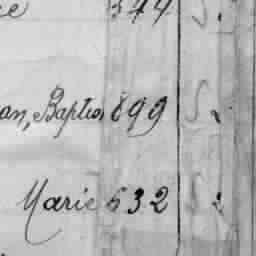 544 S.
an, Baptis 899 S.
Marie 632 S 2